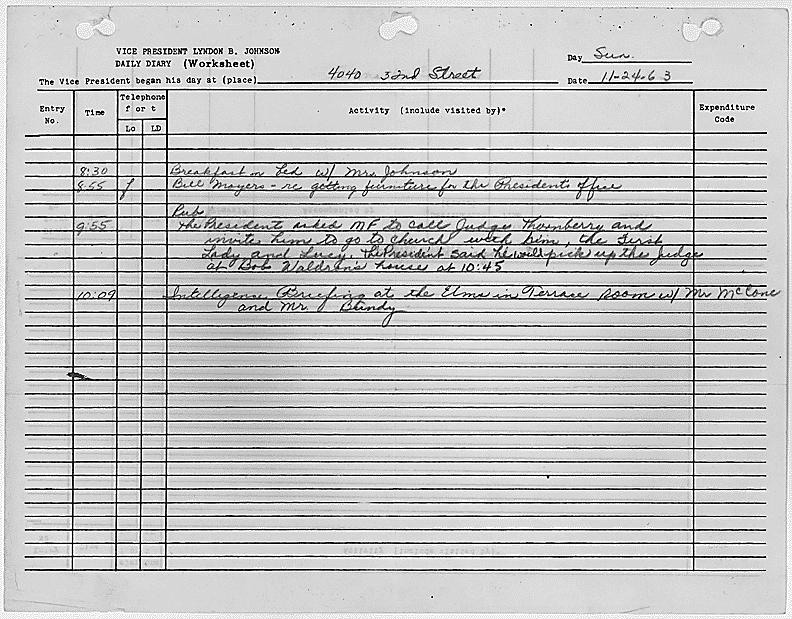 VICE PRESIDENT LYNDON B. JOHNSON
DAILY DIARY (Worksheet)
Day Sun.
The Vice President began his day at (place) 4040 32nd Street
Date 11-24-63
Entry No. Time Telephone f or t Lo LD Activity (include visited by)* Expenditure Code
8:30 Breakfast in bed w/ Mrs. Johnson
8:55 f Bill Moyers - re getting furniture for the Presidents office
Pub
9:55 The President asked MF to call Judge Thornberry and
invite him to go to church with him, the First
Lady and Lucy. The President said he would pick up the Judge
at Bob Waldron's house at 10:45
10:09 Intelligence Briefing at the Elms in Terrace Room w/ Mr McCone
and Mr. Bundy